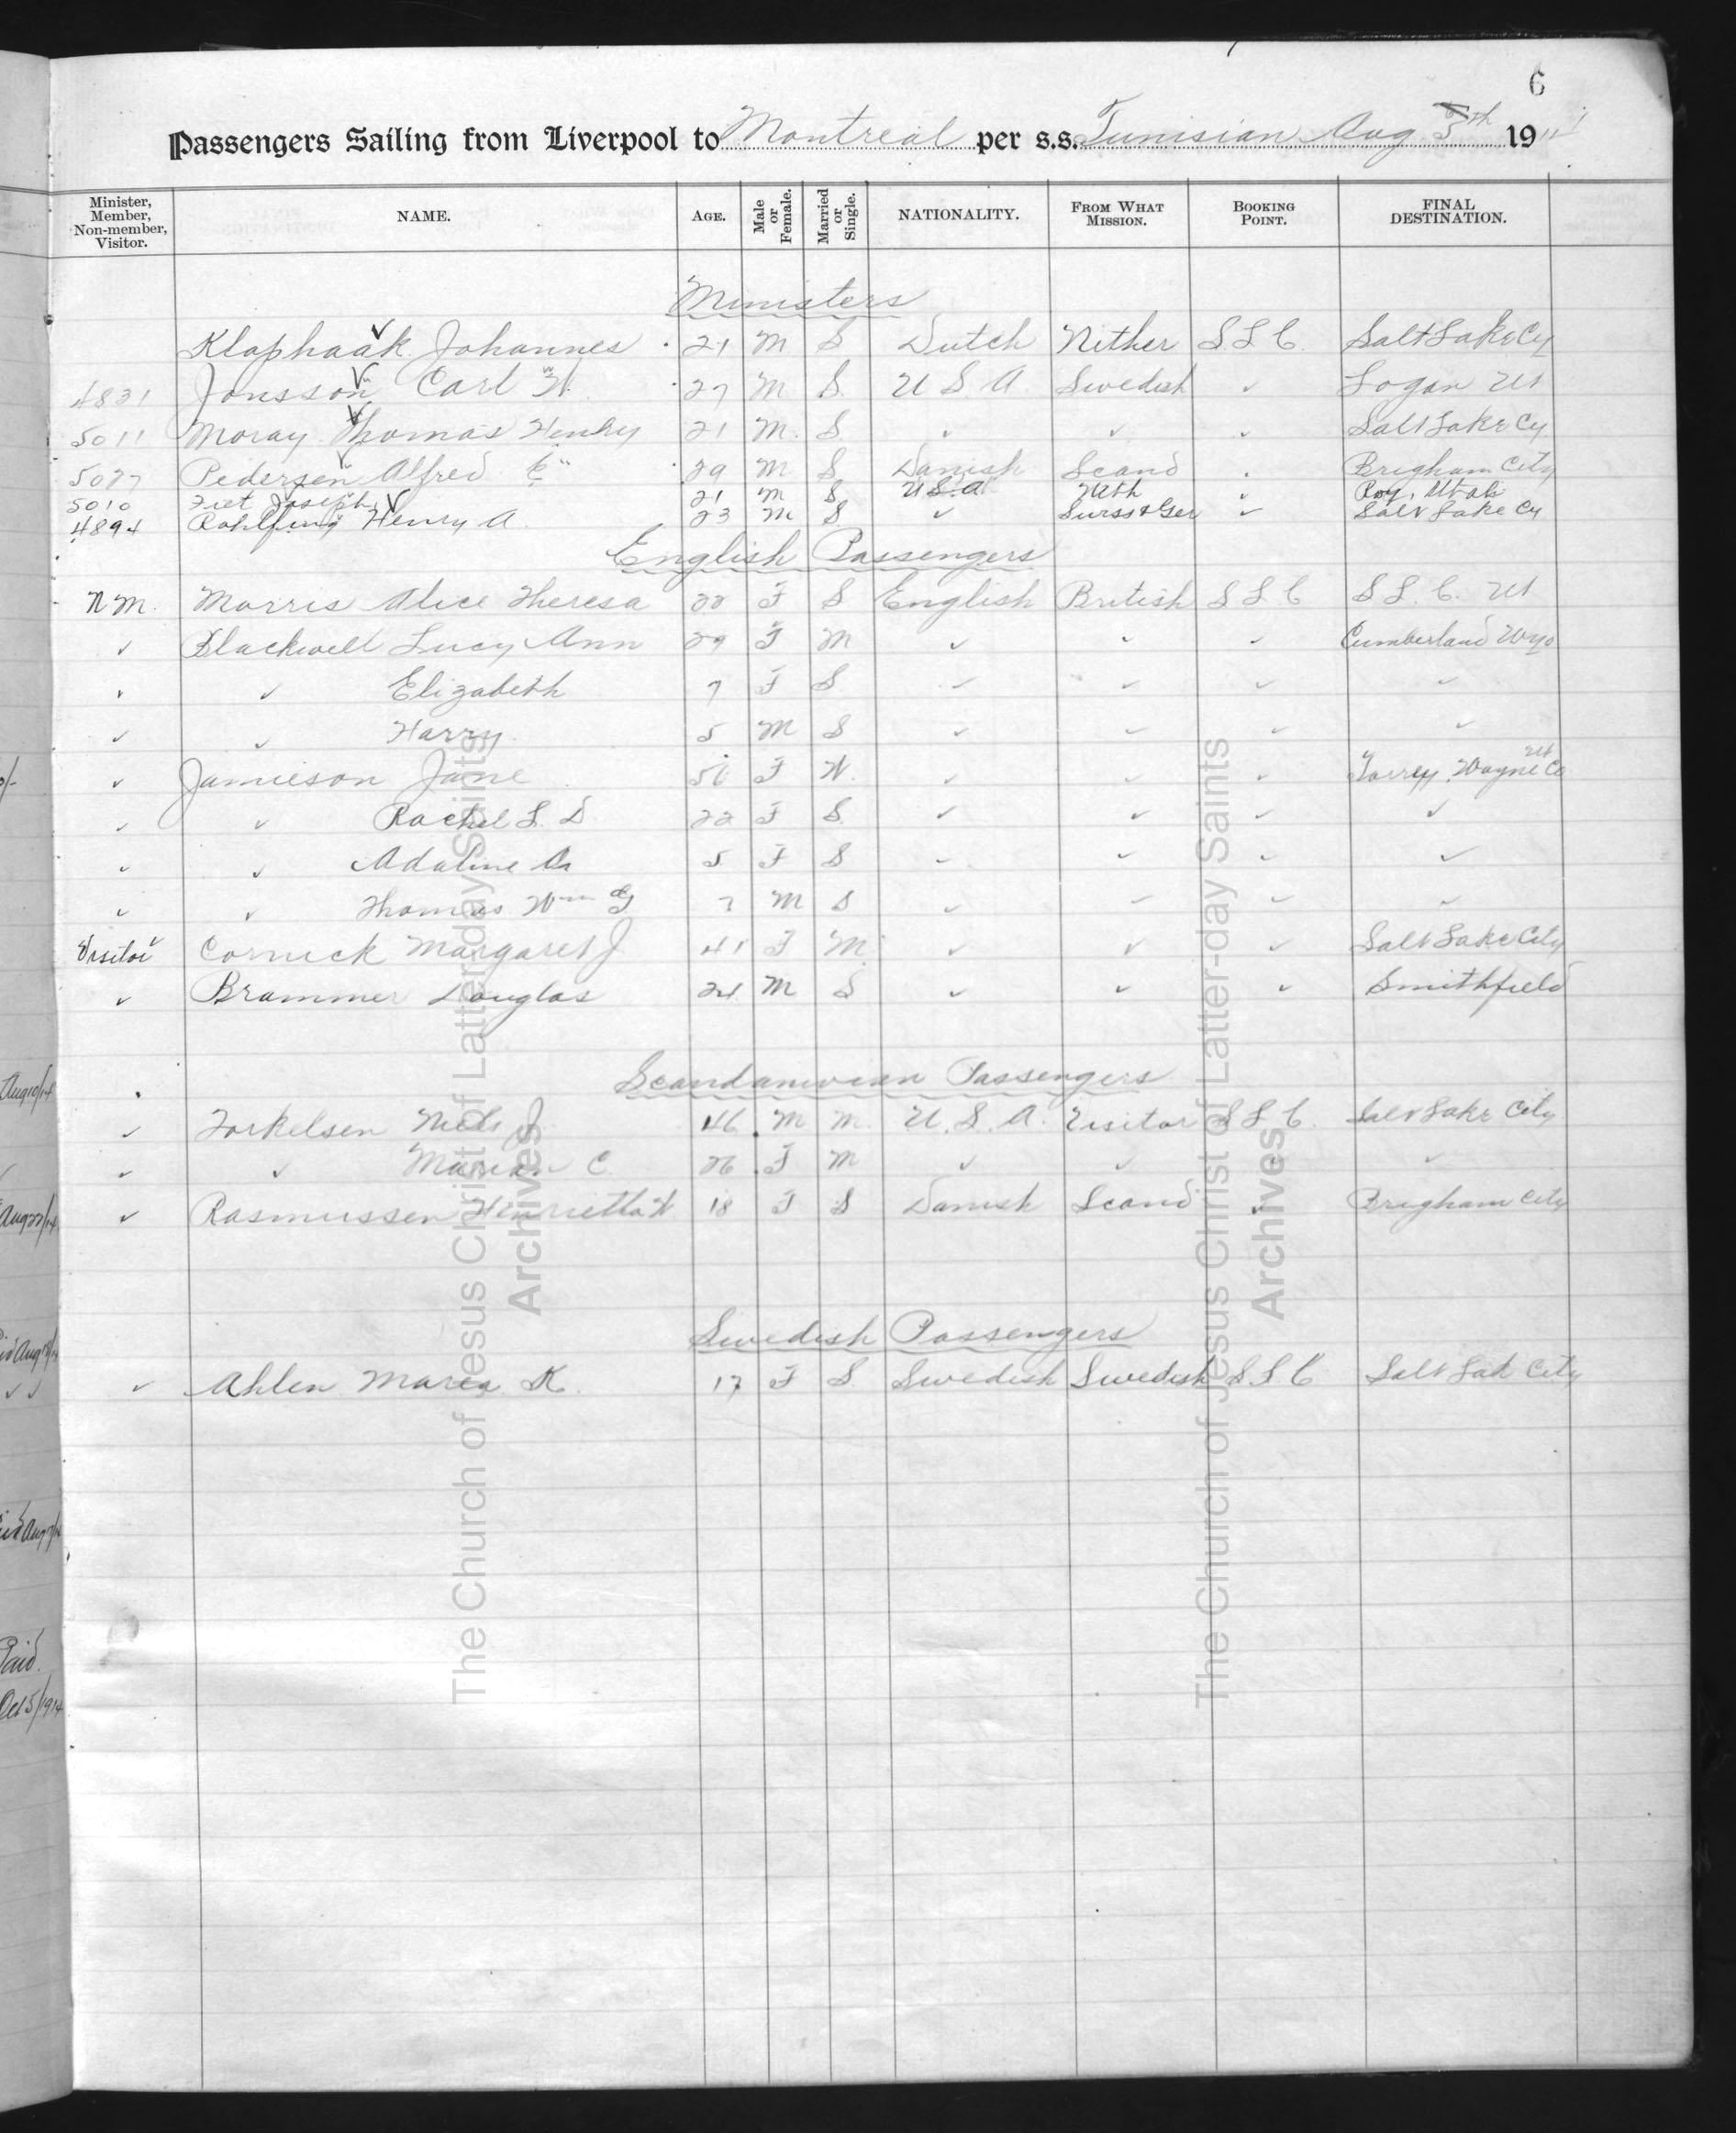 6
Passengers Sailing from Liverpool to Montreal per s.s. Tunisian Aug 5th 1911
Minister, Member, Non-member, Visitor. NAME. AGE. Male or Female. Married or Single. NATIONALITY. FROM WHAT MISSION. BOOKING POINT. FINAL DESTINATION.
Ministers
Klaphaak Johannes 21 M S Dutch Nether S L C Salt Lake Cy
4831 Jonsson Carl W. 27 M S. U S A Swedish ✓ Logan Ut
5011 Moray Thomas Henry 21 M. S ✓ ✓ ✓ Salt Lake Cy
5077 Pedersen Alfred C 29 M S Danish Scand Brigham City
5010 Fiet Joseph 21 M S U S A Neth ✓ Roy, Utah
4894 Rohlfing Henry A 23 M S ✓ Swiss & Ger ✓ Salt Lake Cy
English Passengers
N M. Morris Alice Theresa F S English British S L C S L. C. Ut
✓ Blackwell Lucy Ann 29 F M ✓ ✓ ✓ Cumberland Wyo
✓ ✓ Elizabeth 7 F S ✓ ✓ ✓ ✓
✓ ✓ Harry 5 M S ✓ ✓ ✓ ✓
✓ Jamieson Jane F W. ✓ ✓ ✓ Torrey, Wayne Co Ut
✓ ✓ Rachel L. D 22 F S ✓ ✓ ✓ ✓
✓ ✓ Adaline 5 F S ✓ ✓ ✓ ✓
✓ ✓ Thomas Wm G 7 M S ✓ ✓ ✓ ✓
Visitor Cornick Margaret J 41 F M ✓ ✓ ✓ Salt Lake City
✓ Brammer Douglas 24 M S ✓ ✓ ✓ Smithfield
Scandanivian Passengers
✓ Torkelsen Niels J 46 M M. U. S. A. Visitor S L C. Salt Lake City
✓ ✓ Marian C. 26 F M ✓ ✓ ✓
✓ Rasmussen Henrietta 18 F S Danish Scand ✓ Brigham City
Swedish Passengers
✓ Ahlen Maria K. 17 F S Swedish Swedish S L C Salt Lak City
Aug10/14
Aug22/14
Paid
Oct 5/1914
The Church of Jesus Christ of Latter-day Saints
Archives
The Church of Jesus Christ of Latter-day Saints
Archives